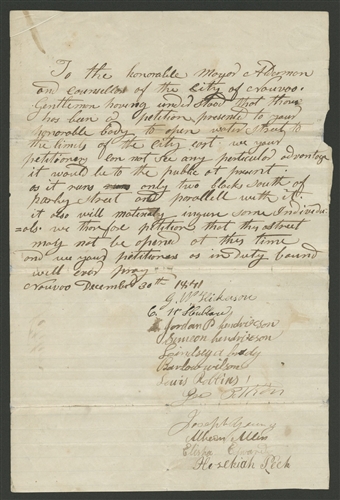 To the honorable Mayor Aldermen
and counsellors of the City of Nauvoo.
Gentlemen having understood that there
has been a petition presented to your
honorable body to open water street to
the limits of the City east we your
petitioners Can not see any particular advantage
it would be to the public at present.
as it runs only two blocks south of
parley street and parallell with it.
it also will materialy ingure some Individu
als. we therefore petition that this street
may not be opened at this time
and we your petitioners as in duty bound
will ever pray
Nauvoo December 30th 1841
G. W.
C.
Jordan P hendrixson
Simeon hendrixson
Barlow wilson
Lewis Robbins
Joseph
Albern Allen
Elisha
Hezekiah Peck